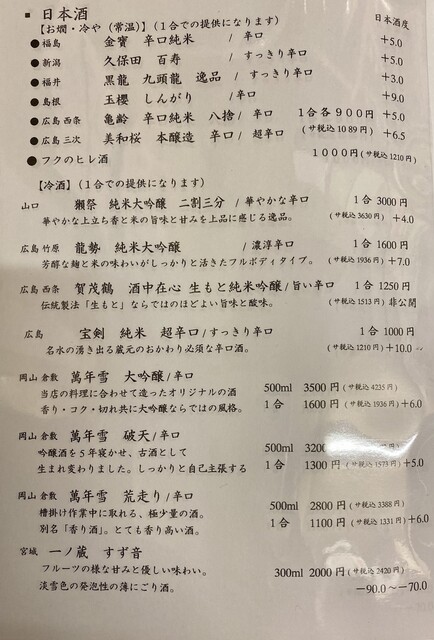 ■ 日本酒
【お燗・冷や（常温）】（１合での提供になります） 日本酒度
●福島 金寶 辛口純米 / 辛口 +5.0
●新潟 久保田 百寿 / すっきり辛口 +5.0
●福井 黒龍 九頭龍 逸品 / すっきり辛口 +3.0
●島根 玉櫻 しんがり / 辛口 +9.0
●広島 西条 亀齢 辛口純米 八拾 / 辛口 １合各９００円 +5.0
●広島 三次 美和桜 本醸造 辛口 / 超辛口 (サ税込 1089 円) +6.5
●フクのヒレ酒 １０００円 (サ税込 1210 円)
【冷酒】（１合での提供になります）
山口 獺祭 純米大吟醸 二割三分 / 華やかな辛口 １合 3000 円
華やかな上立ち香と米の旨味と甘みを上品に感じる逸品。 (サ税込 3630 円) +4.0
広島 竹原 龍勢 純米大吟醸 / 濃淳辛口 １合 1600 円
芳醇な麹と米の味わいがしっかりと活きたフルボディタイプ。 (サ税込 1936 円) +7.0
広島 西条 賀茂鶴 酒中在心 生もと純米吟醸 / 旨い辛口 １合 1250 円
伝統製法「生もと」ならではのほどよい旨味と酸味。 (サ税込 1513 円) 非公開
広島 宝剣 純米 超辛口 / すっきり辛口 １合 1000 円
名水の湧き出る蔵元のおかわり必須な辛口酒。 (サ税込 1210 円) +10.0
岡山 倉敷 萬年雪 大吟醸 / 辛口
当店の料理に合わせて造ったオリジナルの酒 500ml 3500 円 (サ税込 4235 円)
香り・コク・切れ共に大吟醸ならではの風格。 １合 1600 円 (サ税込 1936 円) +6.0
岡山 倉敷 萬年雪 破天 / 辛口
吟醸酒を５年寝かせ、古酒として 500ml 3200
生まれ変わりました。しっかりと自己主張する １合 1300 円 (サ税込 1573 円) +5.0
岡山 倉敷 萬年雪 荒走り / 辛口
槽掛け作業中に取れる、極少量の酒。 500ml 2800 円 (サ税込 3388 円)
別名「香り酒」。とても香り高い酒。 １合 1100 円 (サ税込 1331 円) +6.0
宮城 一ノ蔵 すず音
フルーツの様な甘みと優しい味わい。 300ml 2000 円 (サ税込 2420 円)
淡雪色の発泡性の薄にごり酒。 −90.0～−70.0